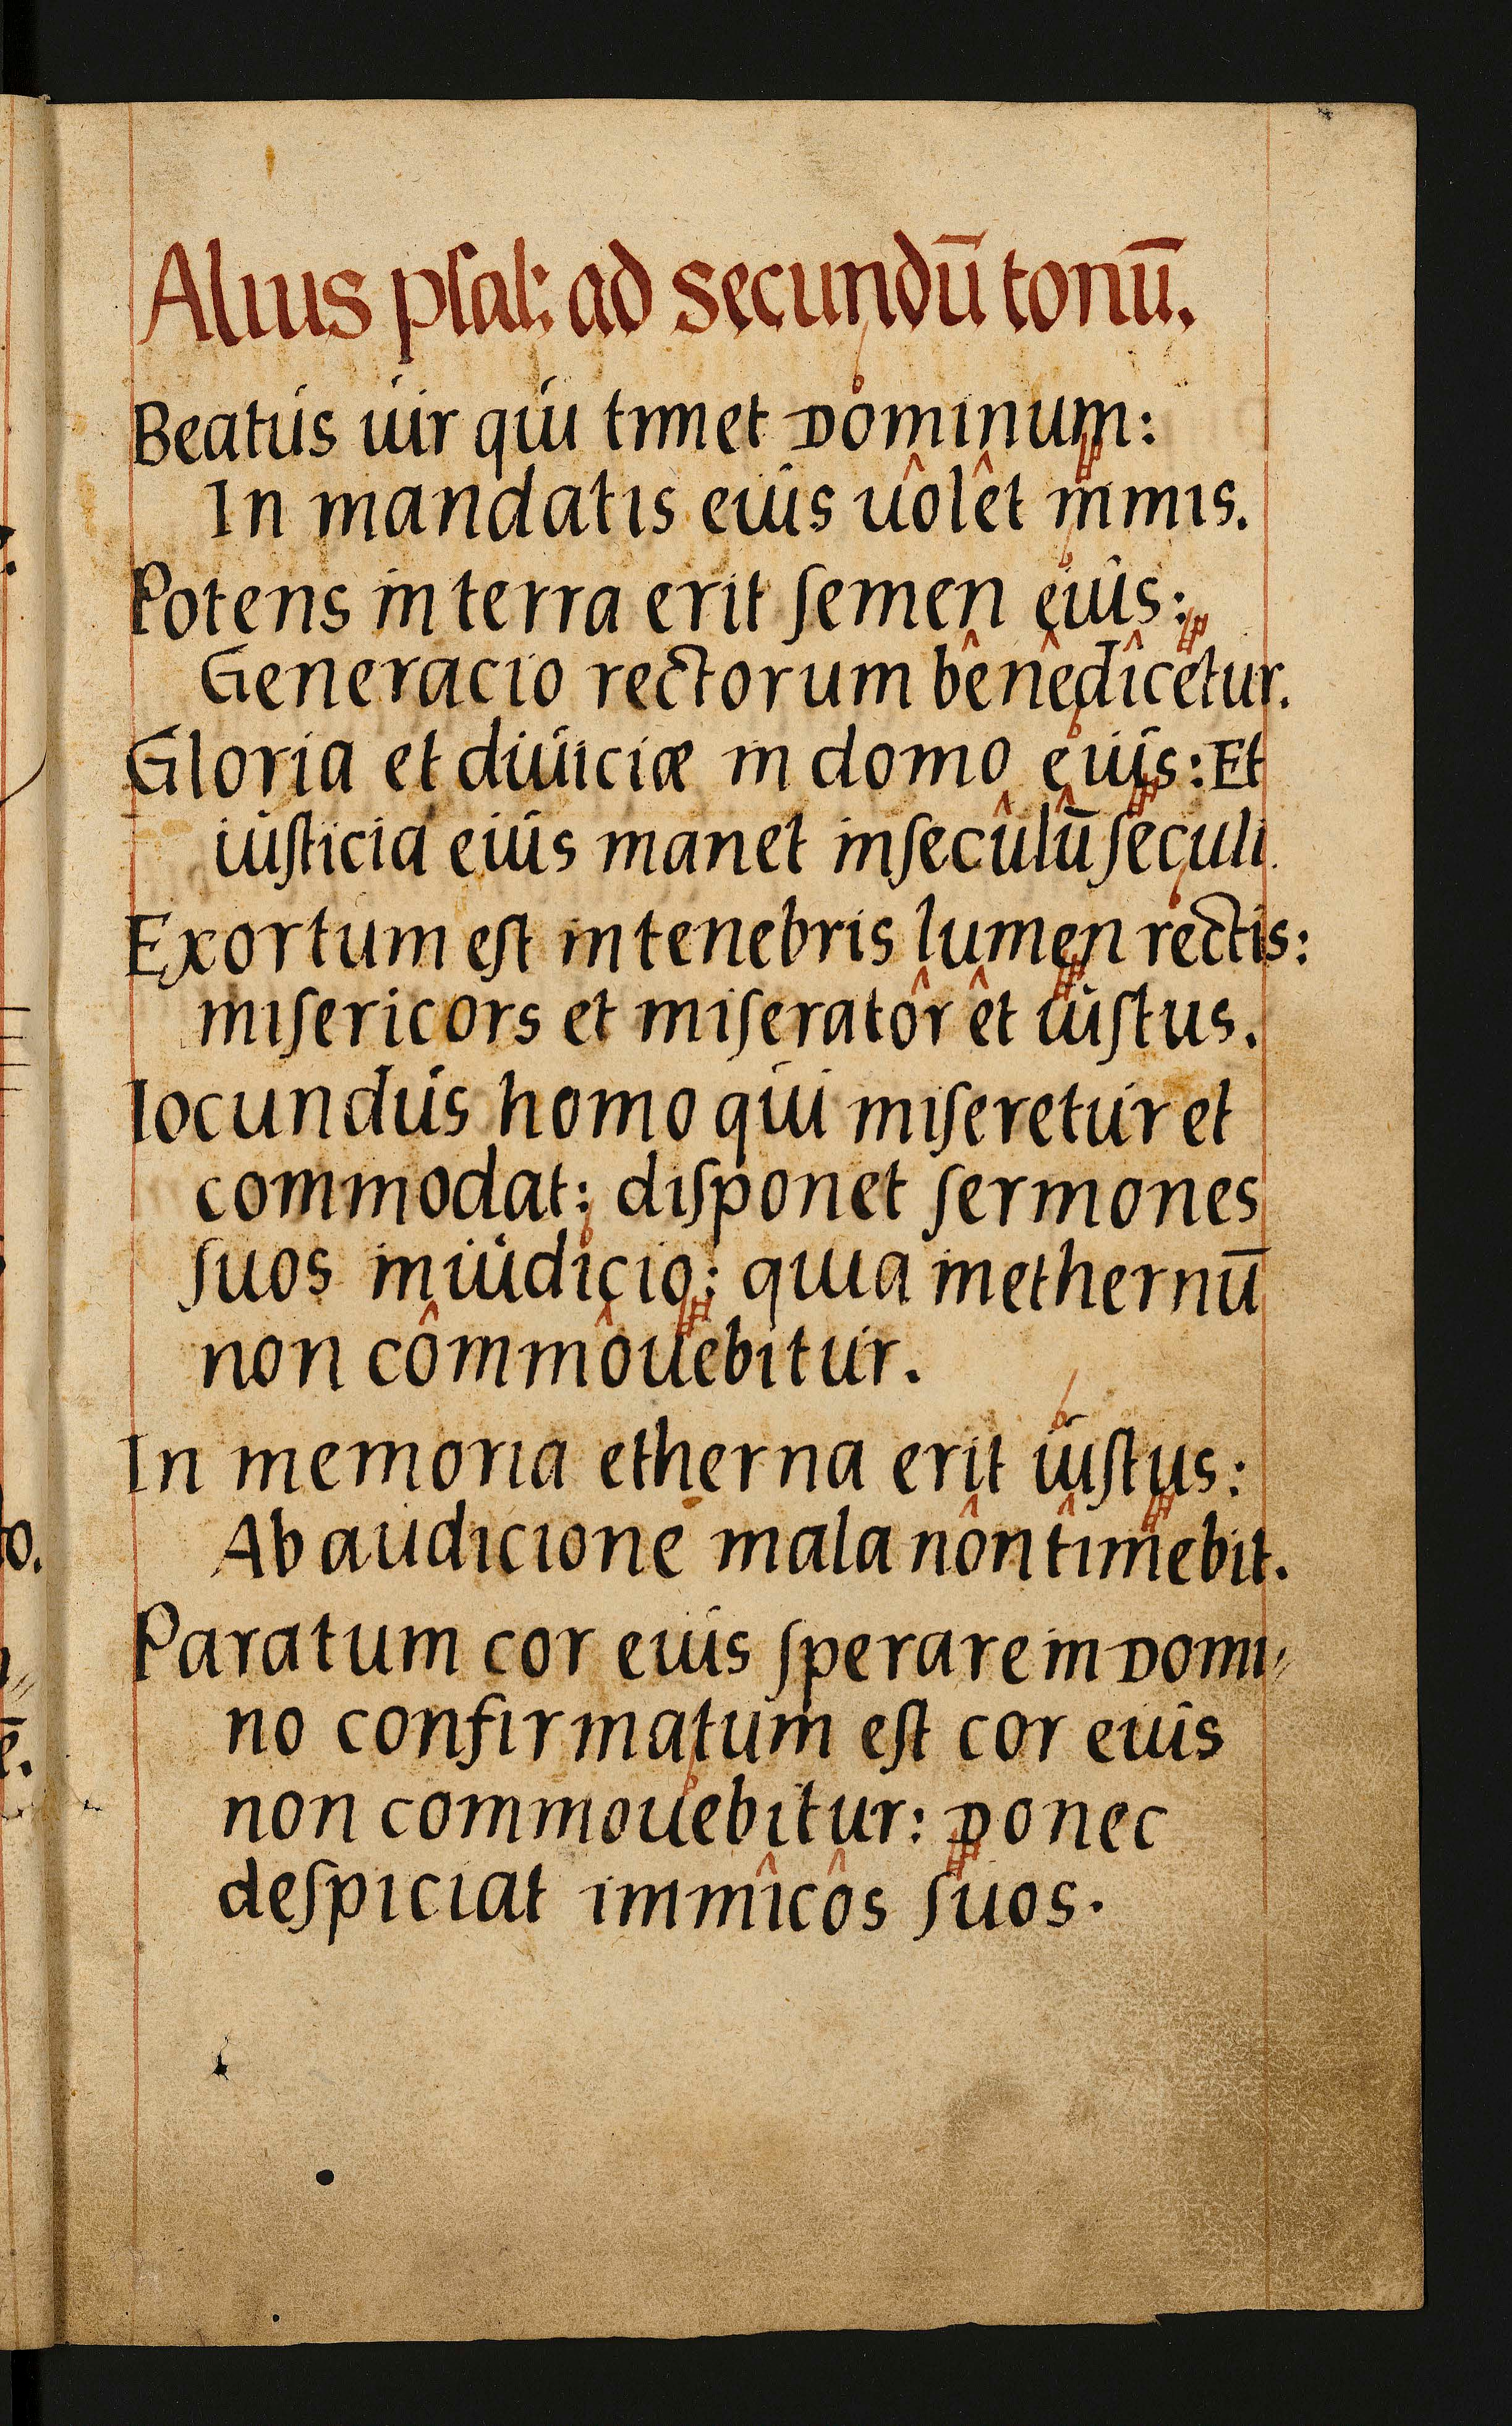 Alius psal: ad secundū tonū.
Beatus uir qui timet Dominum:
In mandatis eius uôlêt nimis.
Potens in terra erit semen eius:
Generacio rectorum bênêdîcetur.
Gloria et diuiciæ in domo eius: Et
iusticia eius manet insecûlū seculi.
Exortum est in tenebris lumen rectis:
misericors et miseratôr êt iustus.
Iocundus homo qui miseretur et
commodat: disponet sermones
suos in iudicio: quia inethernū
non cômmôuebitur.
In memoria etherna erit iustus:
Ab audicione mala nôn tîmebit.
Paratum cor eius sperare in Domi„
no confirmatum est cor eius
non commouebitur: Donec
despiciat inimîcôs suos.
o.
ē.